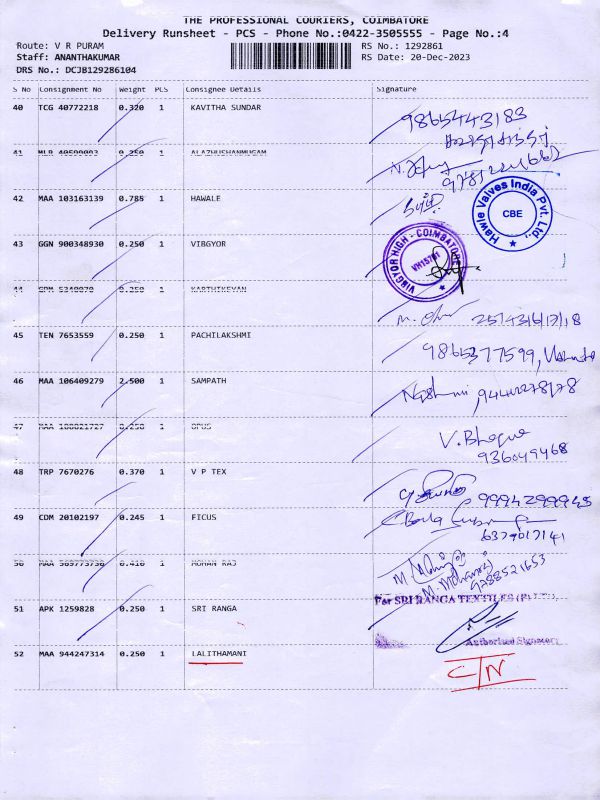 THE PROFESSIONAL COURIERS, COIMBATORE
Delivery Runsheet - PCS - Phone No.:0422-3505555 - Page No.:4
Route: V R PURAM
Staff: ANANTHAKUMAR
DRS No.: DCJB129286104
RS No.: 1292861
RS Date: 20-Dec-2023
S No Consignment No Weight PCS Consignee Details Signature
40 TCG 40772218 0.320 1 KAVITHA SUNDAR
9865443183
41 0.250 1 ALAZHUSHANMUGAM
42 MAA 103163139 0.785 1 HAWALE
Hawle Valves India Pvt. Ltd.,
CBE
43 GGN 900348930 0.250 1 VIBGYOR
VIBGYOR HIGH - COIMBATORE
44 0.250 1 KARTHIKEYAN
45 TEN 7653559 0.250 1 PACHILAKSHMI
9865377599,
46 MAA 106409279 2.500 1 SAMPATH
47 0.250 1 OPUS
V. Bhagya
936049468
48 TRP 7670276 0.370 1 V P TEX
9994299945
49 CDM 20102197 0.245 1 FICUS
6379017141
50 0.410 1 MOHAN RAJ
M. Mohanraj
9788521653
51 APK 1259828 0.250 1 SRI RANGA
For SRI RANGA TEXTILES (P) LTD
Authorised Signatory
52 MAA 944247314 0.250 1 LALITHAMANI